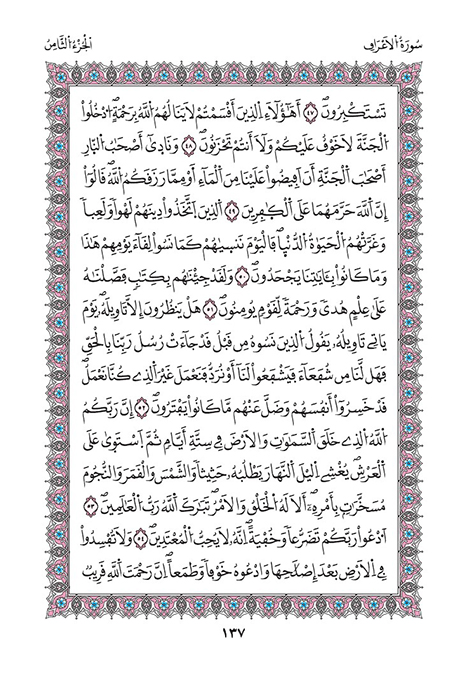 سُورَةُ اُ۬لَاعْرَافِ
اَلْجُزْءُ اُ۬لثَّامِنُ
تَسْتَكْبِرُونَۖ ٤٧ أَهَٰٓؤُلَآءِ اِ۬لذِينَ أَقْسَمْتُمْ لَا يَنَالُهُمُ اُ۬للَّهُ بِرَحْمَةٍۖ اُ۟دْخُلُواْ
اُ۬لْجَنَّةَ لَا خَوْفٌ عَلَيْكُمْ وَلَآ أَنتُمْ تَحْزَنُونَۖ ٤٨ وَنَادَىٰٓ أَصْحَٰبُ اُ۬لنَّارِ
أَصْحَٰبَ اَ۬لْجَنَّةِ أَنَ اَفِيضُواْ عَلَيْنَا مِنَ اَ۬لْمَآءِ اَ۬وْ مِمَّا رَزَقَكُمُ اُ۬للَّهُۖ قَالُوٓاْ
إِنَّ اَ۬للَّهَ حَرَّمَهُمَا عَلَى اَ۬لْكٰ۪فِرِينَ ٤٩ اَ۬لذِينَ اَ۪تَّخَذُواْ دِينَهُمْ لَهْواٗ وَلَعِباٗ
وَغَرَّتْهُمُ اُ۬لْحَيَوٰةُ اُ۬لدُّنْي۪اۖ فَالْيَوْمَ نَنس۪يٰهُمْ كَمَا نَسُواْ لِقَآءَ يَوْمِهِمْ هَٰذَا
وَمَا كَانُواْ بِـَٔايَٰتِنَا يَجْحَدُونَۖ ٥٠ وَلَقَدْ جِئْنَٰهُم بِكِتَٰبٖ فَصَّلْنَٰهُ
عَلَىٰ عِلْمٍ هُدىٗ وَرَحْمَةٗ لِّقَوْمٖ يُومِنُونَۖ ٥١ هَلْ يَنظُرُونَ إِلَّا تَاوِيلَهُۥۖ يَوْمَ
يَاتِے تَاوِيلُهُۥ يَقُولُ اُ۬لذِينَ نَسُوهُ مِن قَبْلُ قَدْ جَآءَتْ رُسُلُ رَبِّنَا بِالْحَقِّ
فَهَل لَّنَا مِن شُفَعَآءَ فَيَشْفَعُواْ لَنَآ أَوْ نُرَدُّ فَنَعْمَلَ غَيْرَ اَ۬لذِے كُنَّا نَعْمَلُۖ
قَدْ خَسِرُوٓاْ أَنفُسَهُمْ وَضَلَّ عَنْهُم مَّا كَانُواْ يَفْتَرُونَۖ ٥٢ إِنَّ رَبَّكُمُ
اُ۬للَّهُ اُ۬لذِے خَلَقَ اَ۬لسَّمَٰوَٰتِ وَالَارْضَ فِے سِتَّةِ أَيَّامٖ ثُمَّ اَ۪سْتَو۪يٰ عَلَى
اَ۬لْعَرْشِۖ يُغْشِے اِ۬ليْلَ اَ۬لنَّهَارَ يَطْلُبُهُۥ حَثِيثاٗ وَالشَّمْسَ وَالْقَمَرَ وَالنُّجُومَ
مُسَخَّرَٰتِۢ بِأَمْرِهِۦٓۖ أَلَا لَهُ اُ۬لْخَلْقُ وَالَامْرُۖ تَبَٰرَكَ اَ۬للَّهُ رَبُّ اُ۬لْعَٰلَمِينَۖ ٥٣
اَ۟دْعُواْ رَبَّكُمْ تَضَرُّعاٗ وَخُفْيَةًۖ اِنَّهُۥ لَا يُحِبُّ اُ۬لْمُعْتَدِينَۖ ٥٤ وَلَا تُفْسِدُواْ
فِے اِ۬لَارْضِ بَعْدَ إِصْلَٰحِهَا وَادْعُوهُ خَوْفاٗ وَطَمَعاًۖ اِنَّ رَحْمَتَ اَ۬للَّهِ قَرِيبٞ
١٣٧